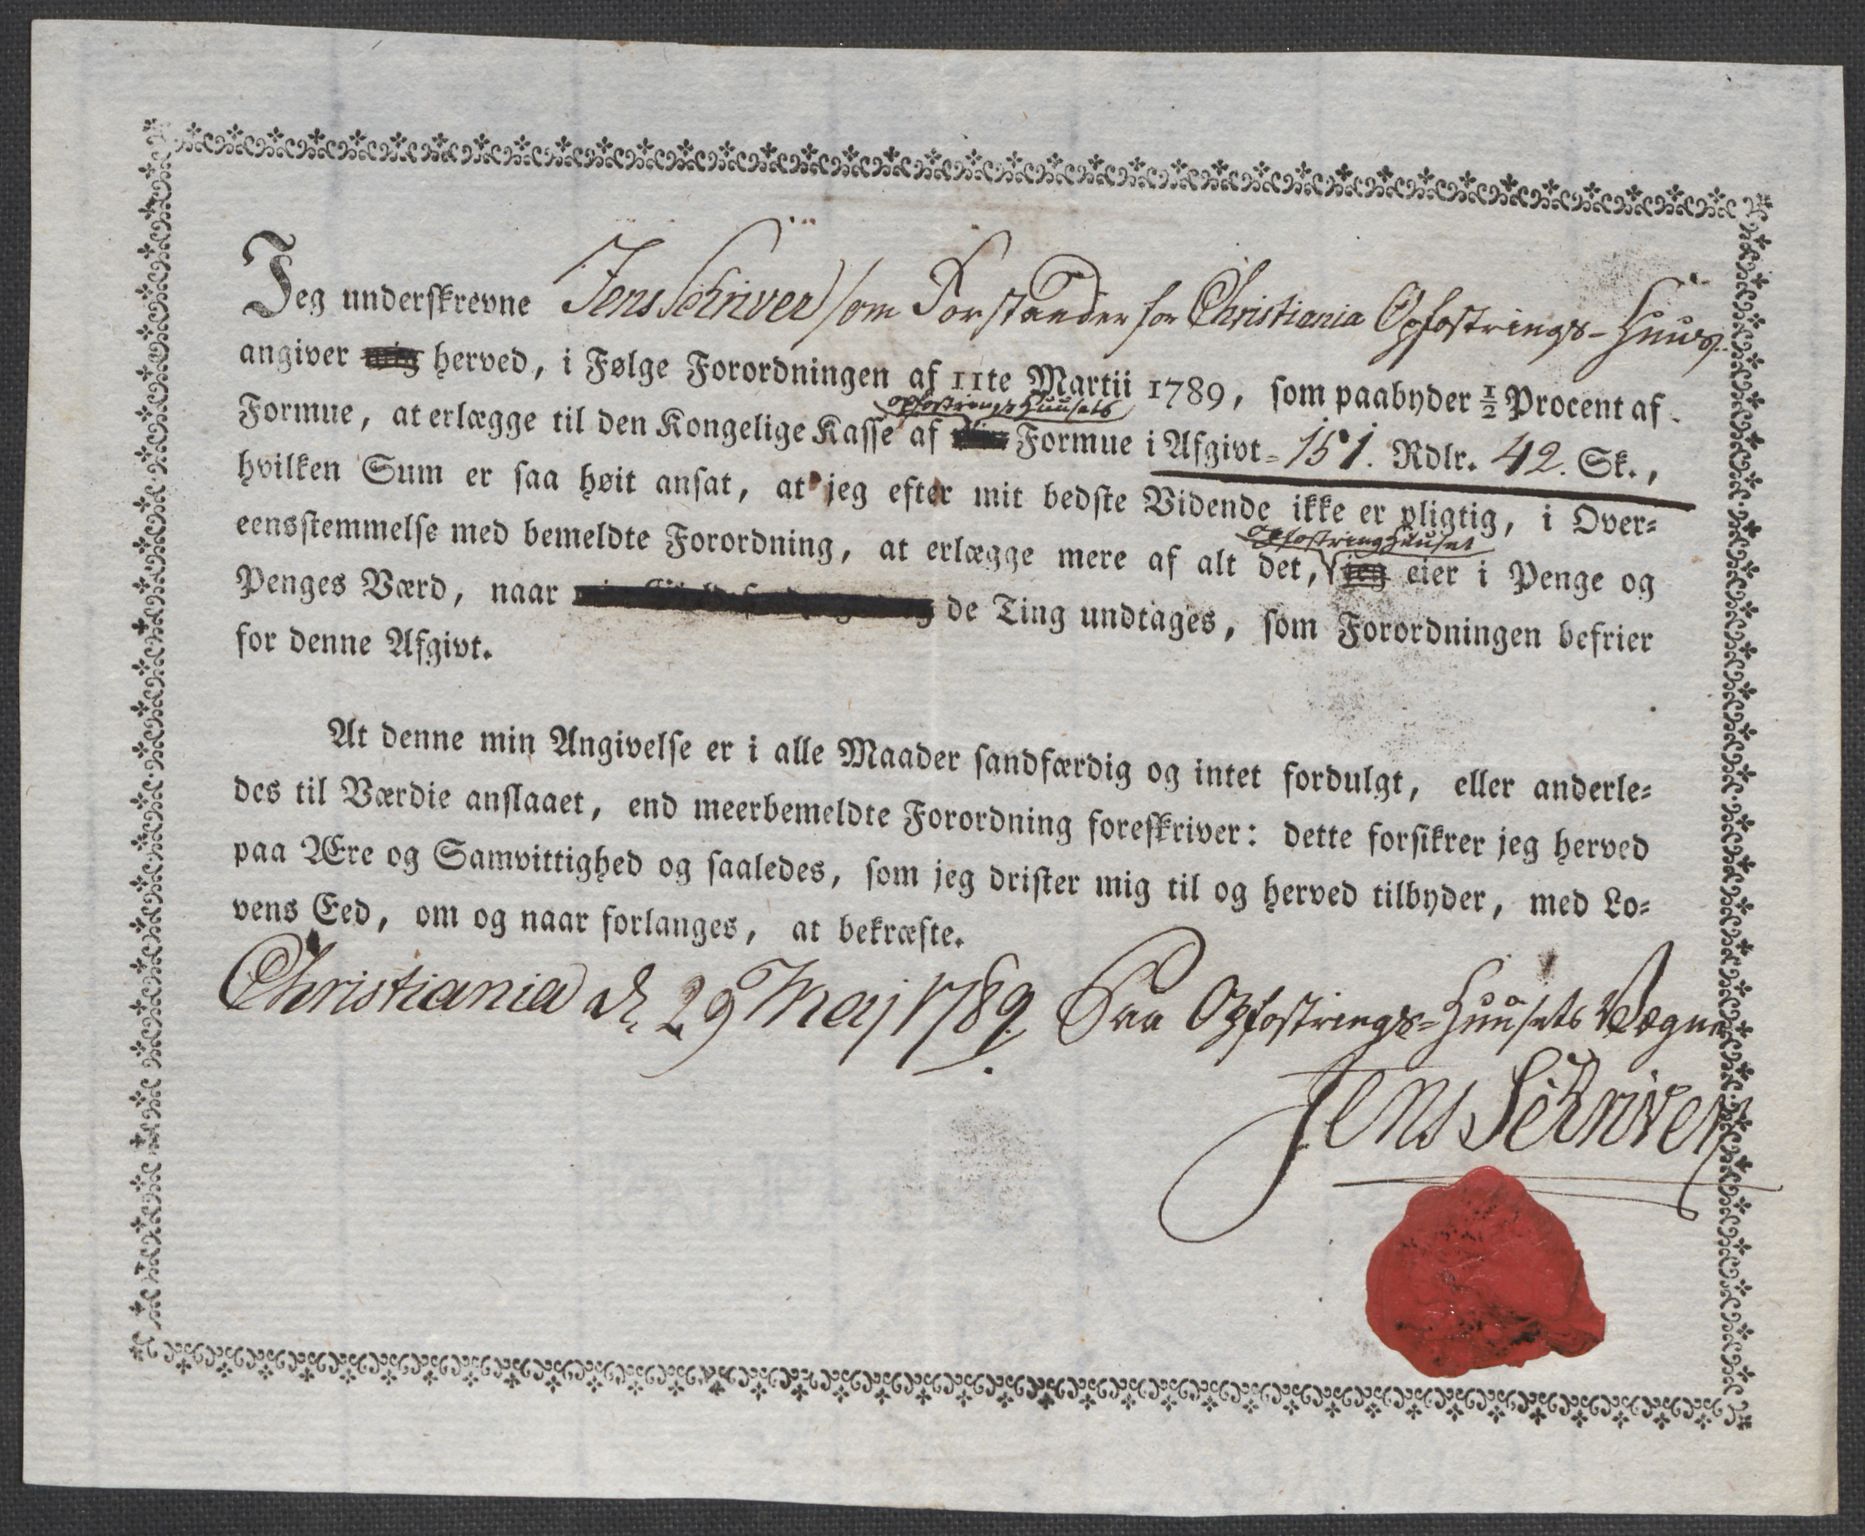 Jeg underskrevne Jens Schriver som Forstander for Christiania Opfostrings-Huus
angiver mig herved, i Følge Forordningen af 11te Martii 1789, som paabyder ½ Procent af
opfostrings Huusets
Formue, at erlægge til den Kongelige Kasse af Formue i Afgivt 151. Rdlr. 42. Sk.,
hvilken Sum er saa høit ansat, at jeg efter mit bedste Vidende ikke er pligtig, i Over=
opfostringshuuset
eensstemmelse med bemeldte Forordning, at erlægge mere af alt det, jeg eier i Penge og
Penges Værd, naar de Ting undtages, som Forordningen befrier
for denne Afgivt.
At denne min Angivelse er i alle Maader sandfærdig og intet fordulgt, eller anderle=
des til Værdie anslaaet, end meerbemeldte Forordning foreskriver: dette forsikrer jeg herved
paa Ære og Samvittighed og saaledes, som jeg drister mig til og herved tilbyder, med Lo=
vens Eed, om og naar forlanges, at bekræfte.
Christiania d. 29 Maj 1789. Paa Opfostrings=Huusets Vægne
Jens Schriver